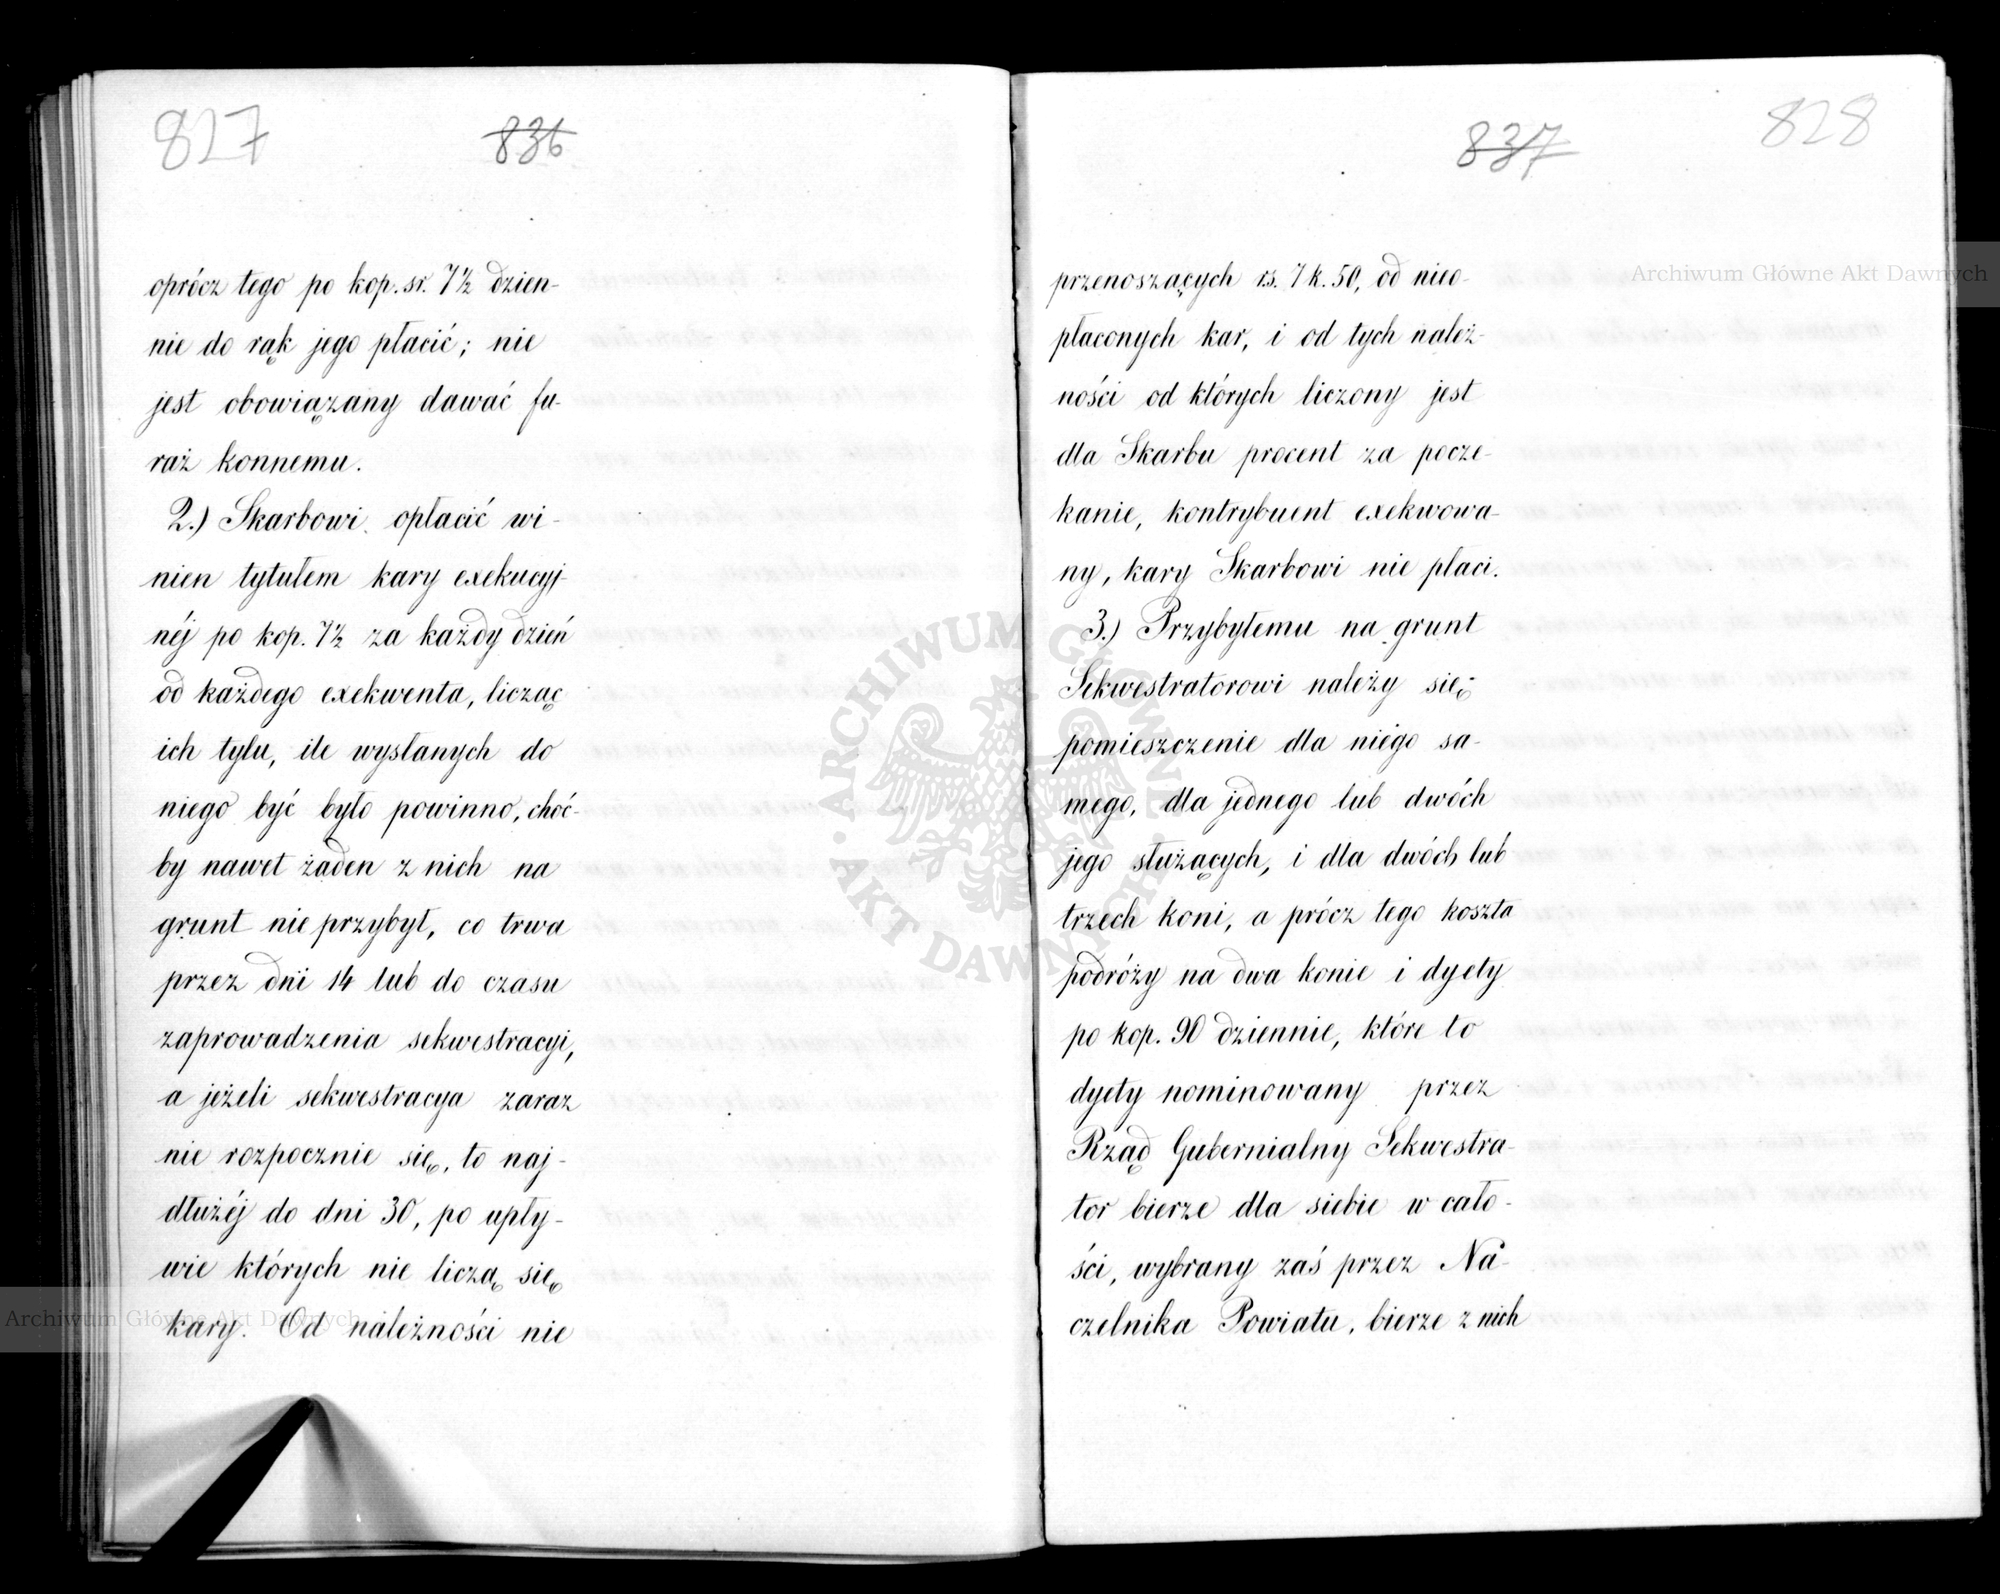 827
836
oprócz tego po kop. sr. 7½ dzien-
nie do rąk jego płacić; nie
jest obowiązany dawać fu-
raż konnemu.
2.) Skarbowi opłacić wi-
nien tytułem kary exekucyj-
néj po kop. 7½ za każdy dzień
od każdego exekwenta, licząc
ich tylu, ile wysłanych do
niego być było powinno, choć-
by nawet żaden z nich na
grunt nie przybył, co trwa
przez dni 14 lub do czasu
zaprowadzenia sekwestracyi,
a jeżeli sekwestracya zaraz
nie rozpocznie się, to naj-
dłużéj do dni 30, po upły-
wie których nie liczą się
kary. Od należności nie
837
828
przenoszących rs. 7 k. 50, od nieo-
płaconych kar, i od tych należ-
ności od których liczony jest
dla Skarbu procent za pocze-
kanie, kontrybuent exekwowa-
ny, kary Skarbowi nie płaci.
3.) Przybyłemu na grunt
Sekwestratorowi należy się:
pomieszczenie dla niégo sa-
mego, dla jednego lub dwóch
jego służących, i dla dwóch lub
trzech koni, a prócz tego koszta
podróży na dwa konie i dyety
po kop. 90 dziennie, które to
dyety nominowany przez
Rząd Gubernialny Sekwestra-
tor bierze dla siebie w cało-
ści, wybrany zaś przez Na-
czelnika Powiatu, bierze z nich
Archiwum Główne Akt Dawnych
Archiwum Główne Akt Dawnych
ARCHIWUM GŁÓWNE
AKT DAWNYCH